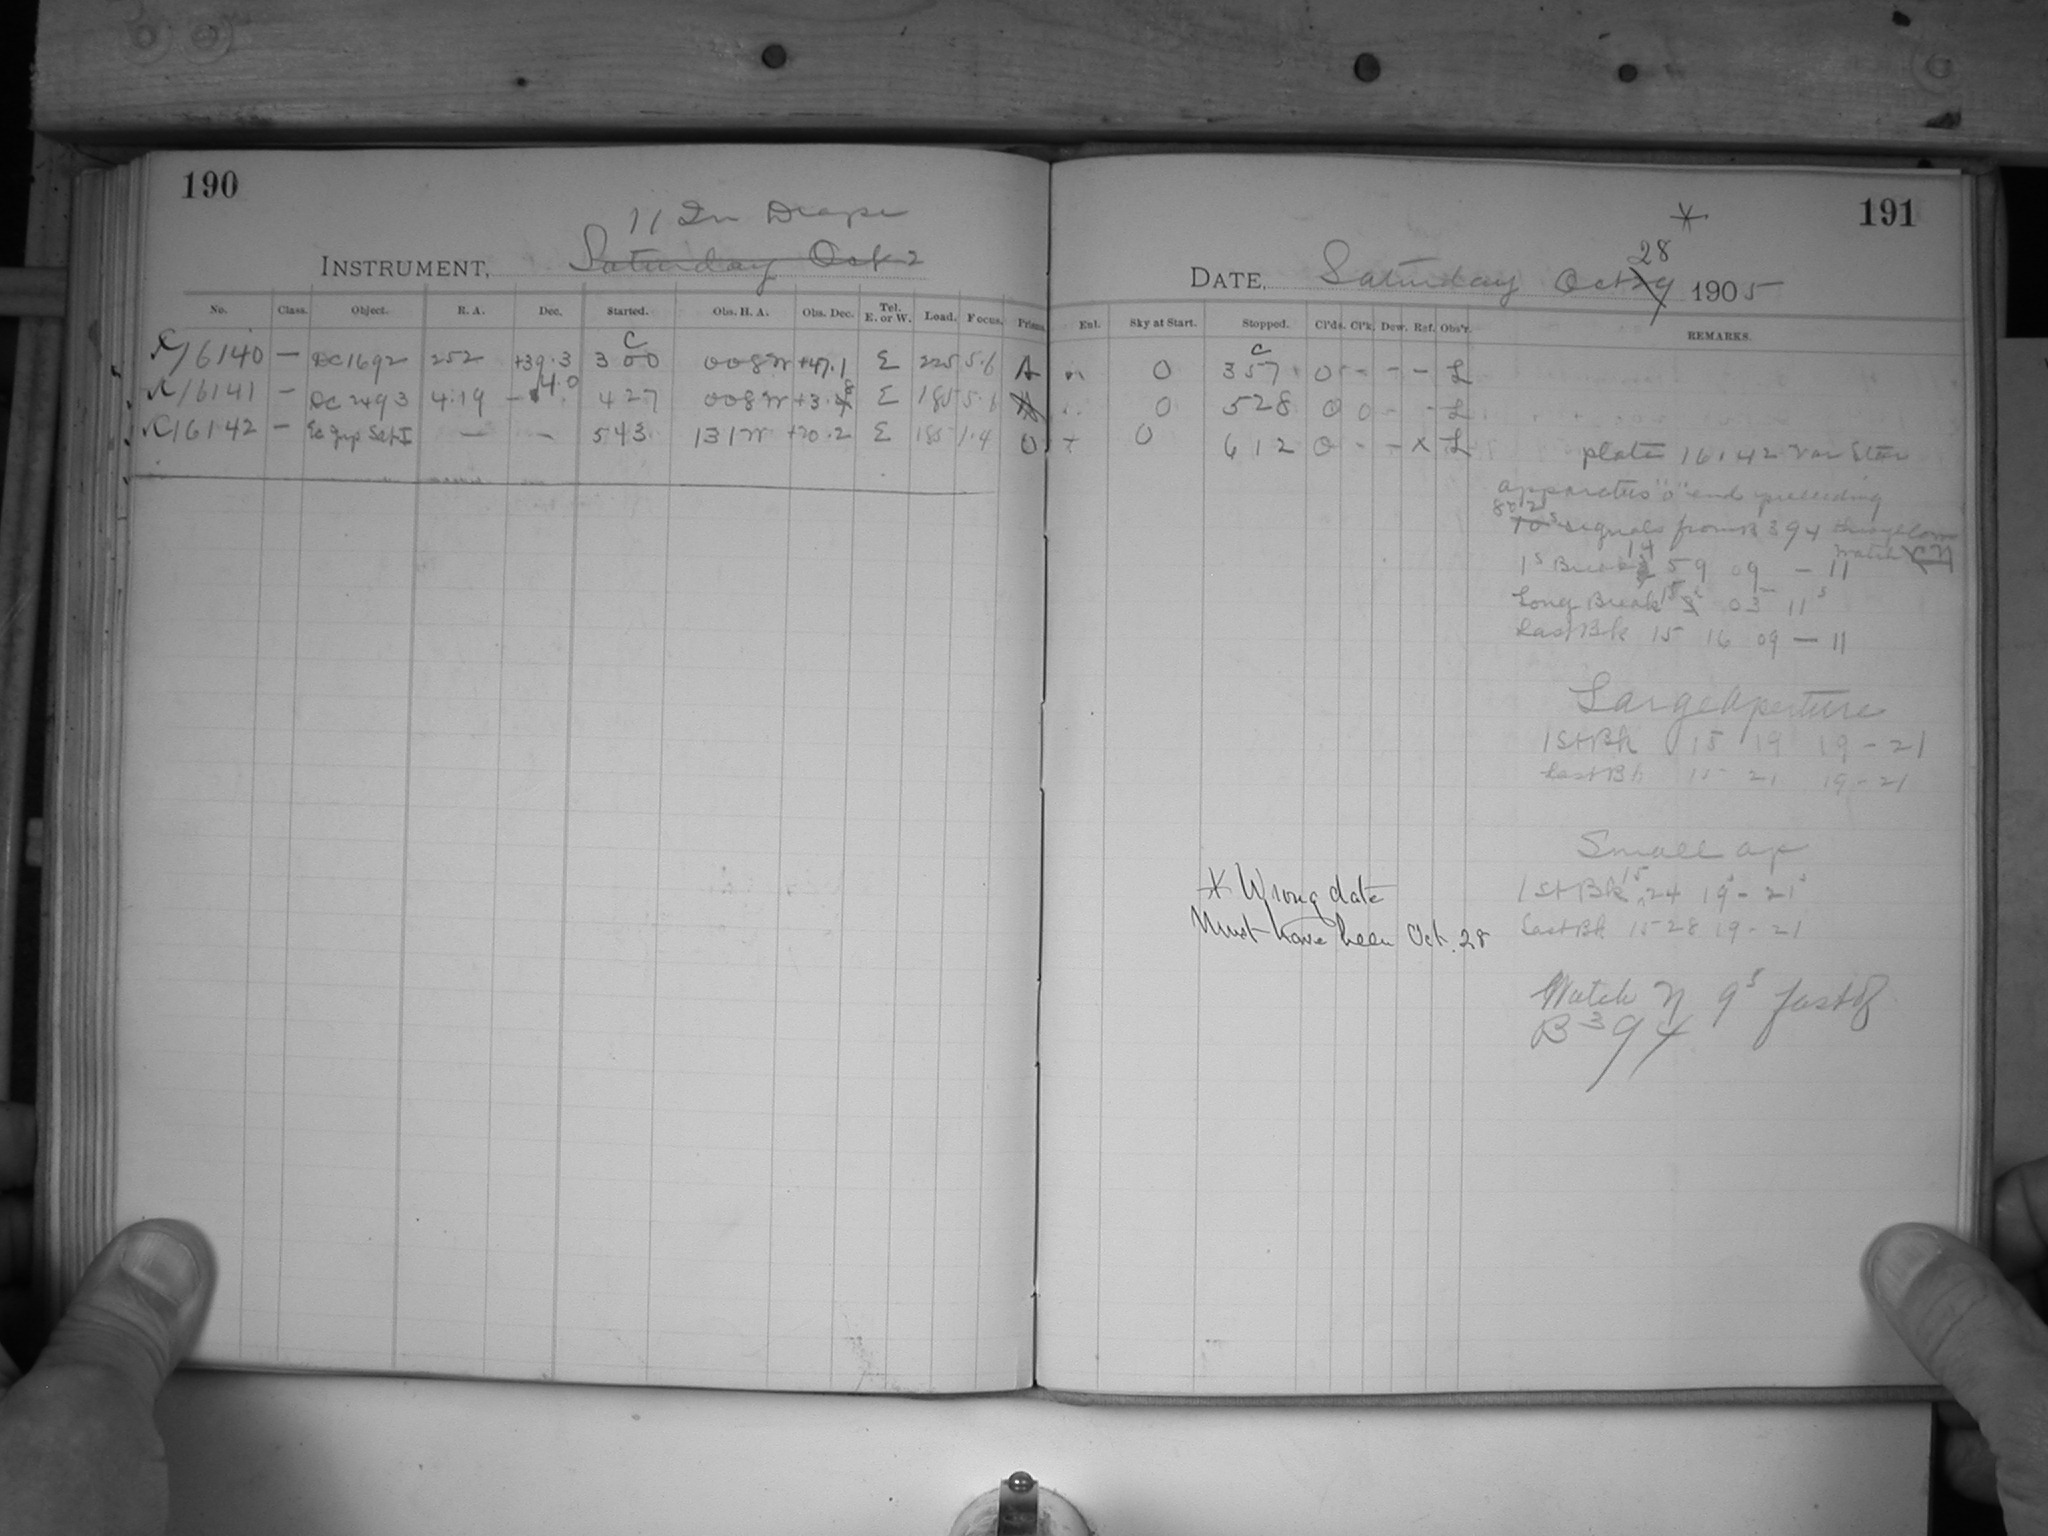 190
11 In Drape
INSTRUMENT, Saturday Oct 2
No. Class. Object. R. A. Dec. Started. Obs. H. A. Obs. Dec. Tel. E. or W. Load. Focus. Prisms
C16140 — DC 1692 252 +39.3 3 00 0 08 W +47.1 E 225 5.6 A
C16141 — DC 2493 4:19 4.0 4 27 0 08 W +3.8 E 185 5.6 A
C16142 — Set I — — 5 43 1 31 W +20.2 E 185 1.4 0
191
*
28
DATE, Saturday Oct 29 1905
Enl. Sky at Start. Stopped. Cl'ds. Cl'k. Dew. Ref. Obs'r. REMARKS.
C
0 357 0 - - - L
0 528 0 0 - - L
0 612 0 - - x L
plate 16142 Var Star
apparatus "o" end preceeding
signals from B 394
watch N
1s Break 14 59 09 — 11
Long Break 15 03 11s
Last Bk 15 16 09 — 11
Large Aperture
1st Bk 15 19 19 - 21
Last Bk 15 21 19 - 21
Small ap
1st Bk 15 24 19 - 21
Last Bk 15 28 19 - 21
* Wrong date
Must have been Oct. 28
Watch N 9s fast of
B 394